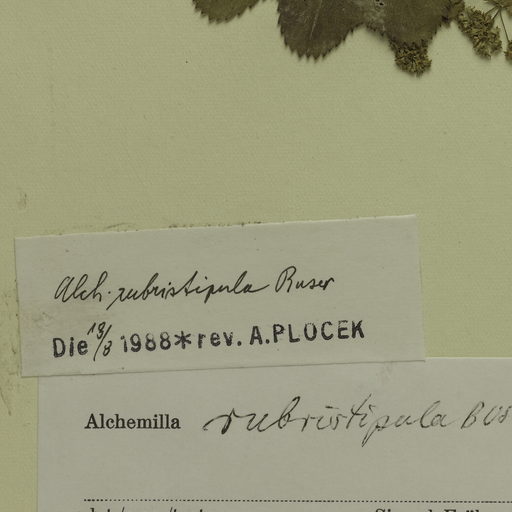 Alch. rubristipula Buser
Die 13/8 1988* rev. A.PLOCEK
Alchemilla rubristipula BUS